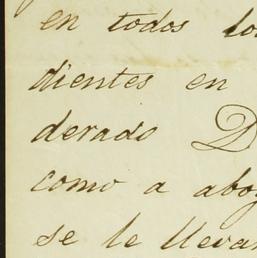 en todos lo
dientes en
derado D
como a abog
se le lleva